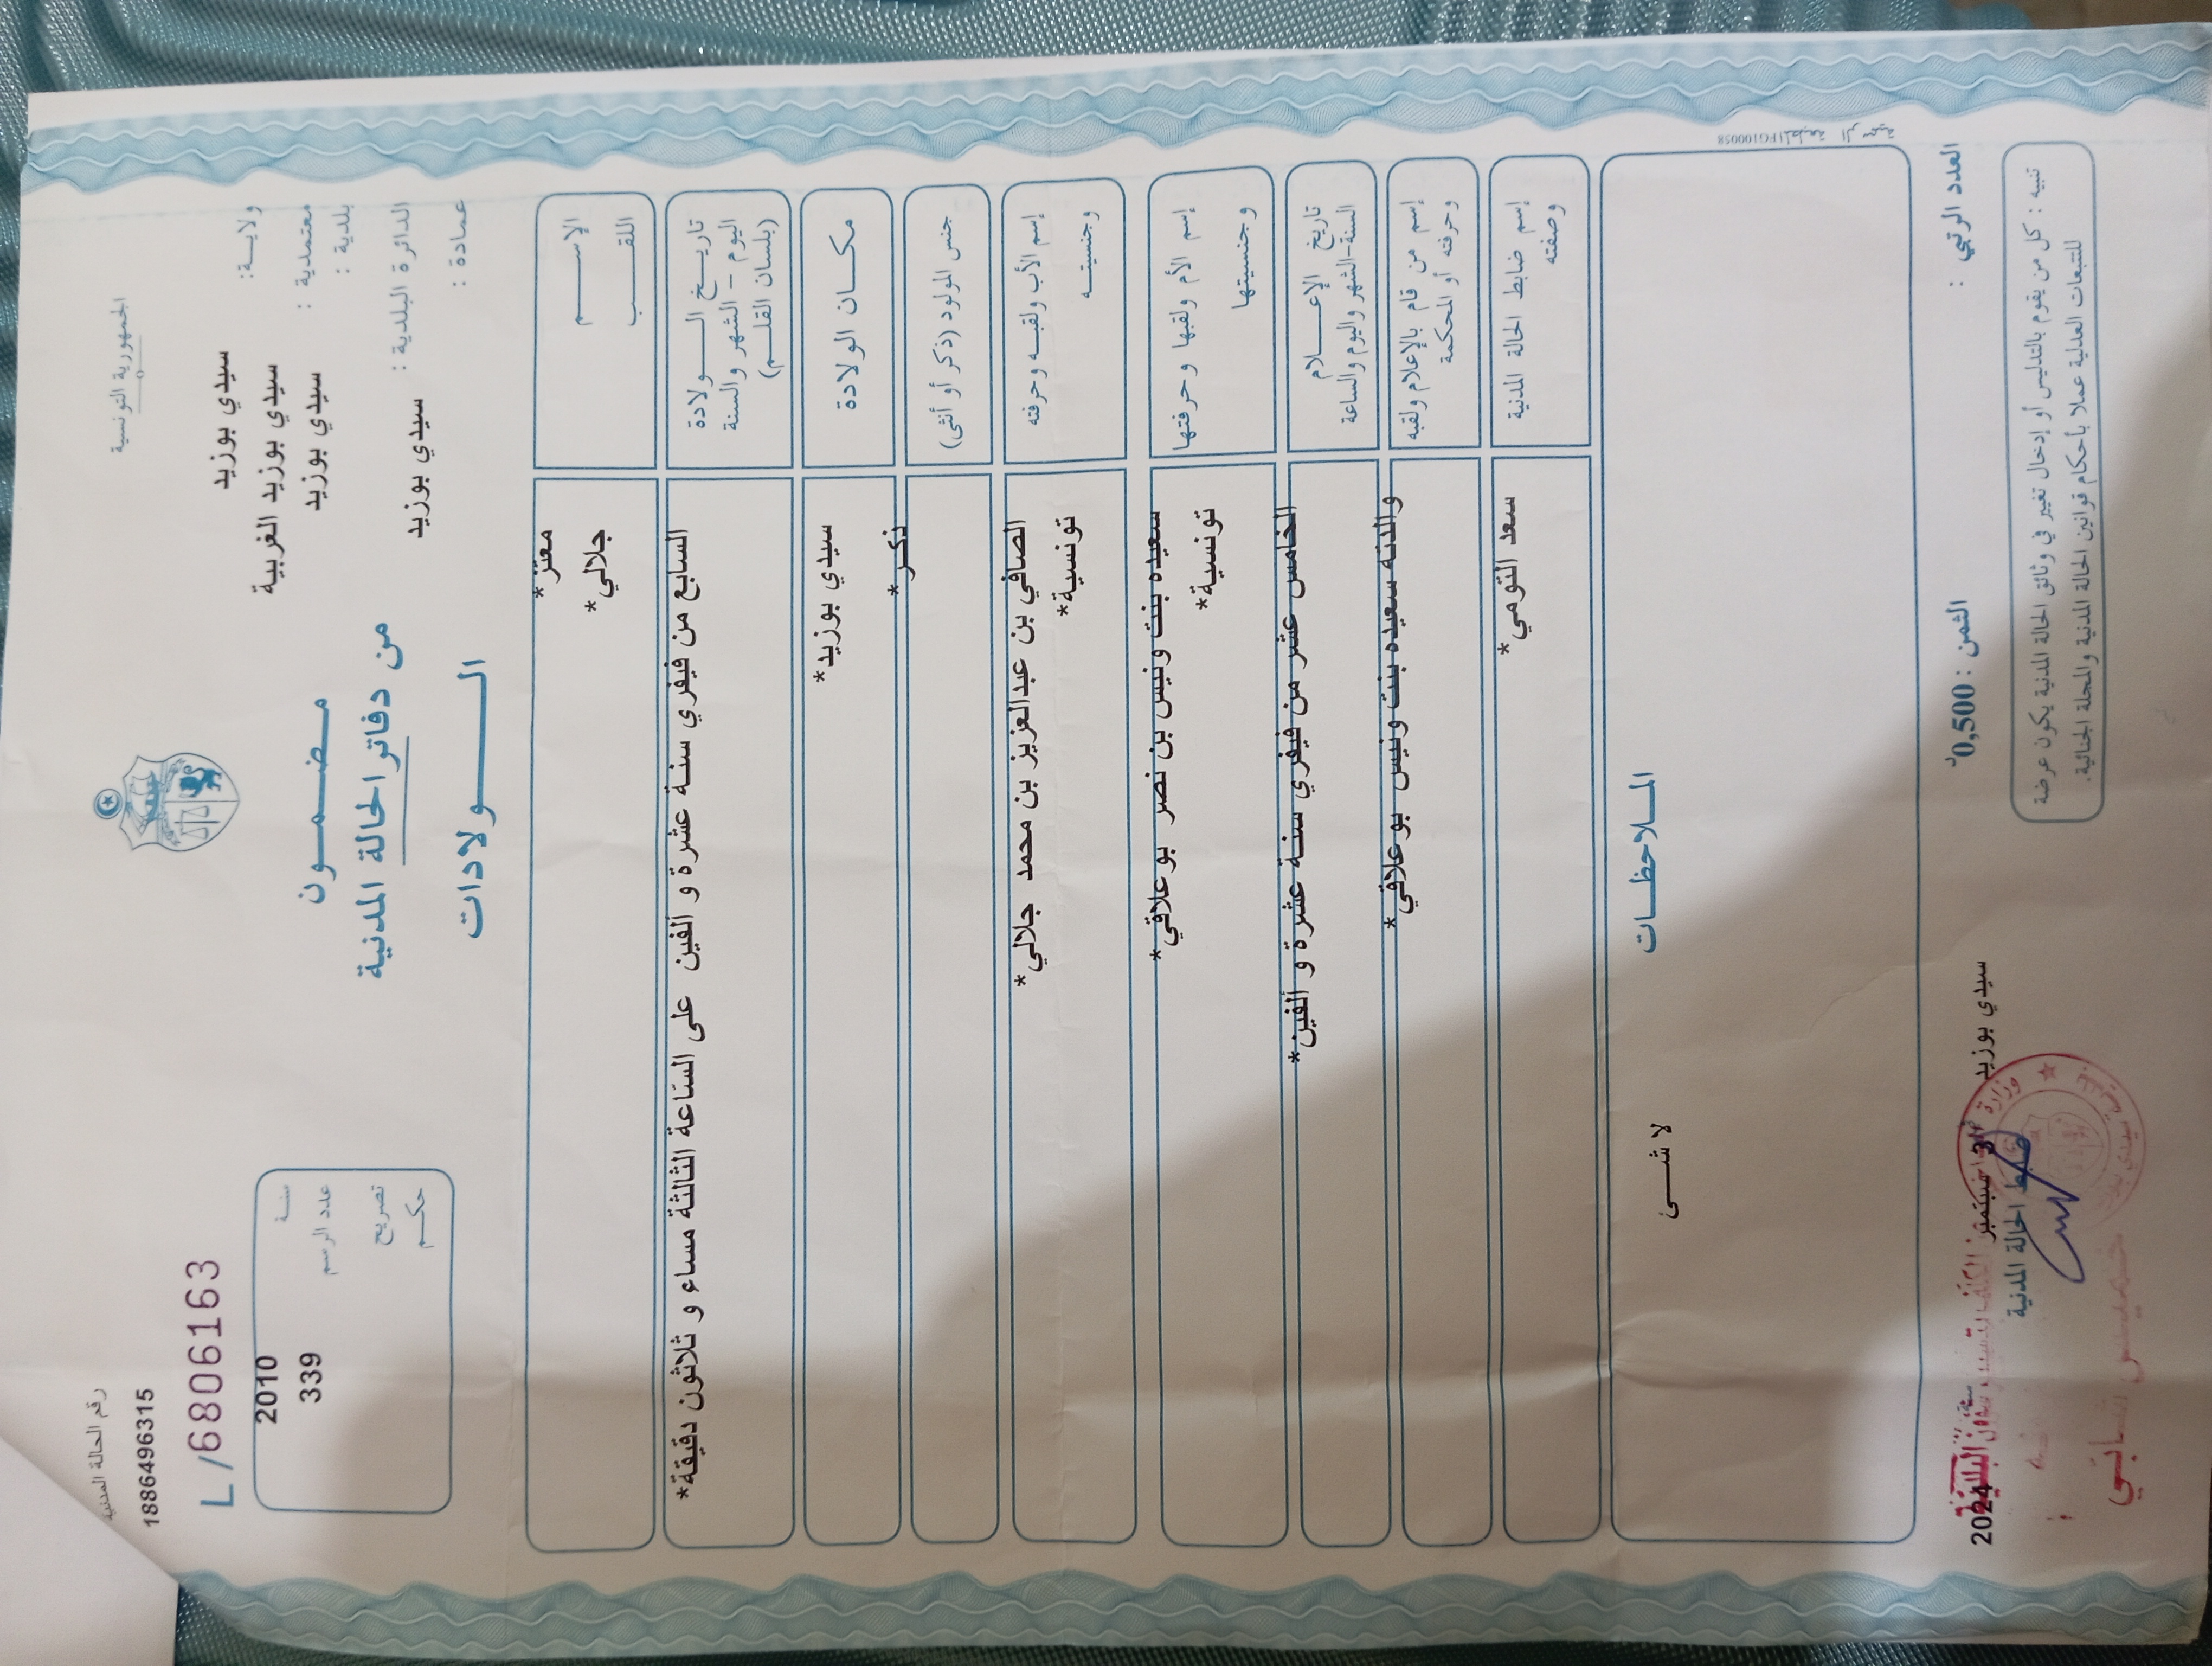 الجمهورية التونسية
رقم الحالة المدنية
1886496315
L/68806163
ولايـة: سيدي بوزيد
معتمدية : سيدي بوزيد الغربية
بلدية : سيدي بوزيد
الدائرة البلدية :
سيدي بوزيد
عمادة :
مـضـمــون
من دفاتر الحالة المدنية
الــــولادات
سنـة 2010
عدد الرسم 339
تصريح
حكـم
الإســـم معتز*
اللقـــب جلالي*
تاريــخ الـــولادة
اليوم - الشهر والسنة
(بلسان القلـم)
السابع من فيفري سنة عشرة و ألفين على الساعة الثالثة مساء و ثلاثون دقيقة*
مكـان الولادة سيدي بوزيد*
جنس المولود (ذكر أو أنثى) ذكر*
إسم الأب ولقبـه وحرفته الصافي بن عبدالعزيز بن محمد جلالي*
وجنسيتـه تونسية*
إسم الأم ولقبها وحرفتها سعيده بنت ونيس بن نصر بوعلاقي*
وجنسيتها تونسية*
تاريخ الإعـــلام
السنة-الشهر واليوم والساعة
الخامس عشر من فيفري سنة عشرة و ألفين*
إسم من قام بالإعلام ولقبه
وحرفته أو المحكمة
والدته سعيده بنت ونيس بوعلاقي*
إسم ضابط الحالة المدنية
وصفته
سعد التومي*
المـلاحظـات
لا شـــئ
FG100058 المطبعة الرسمية
العدد الرتبي :
الثمن : 0,500د
سيدي بوزيد
2024
ضابط الحالة المدنية
تنبيه : كل من يقوم بالتدليس أو إدخال تغيير في وثائق الحالة المدنية يكون عرضة
للتتبعات العدلية عملا بأحكام قوانين الحالة المدنية والمجلة الجنائية.